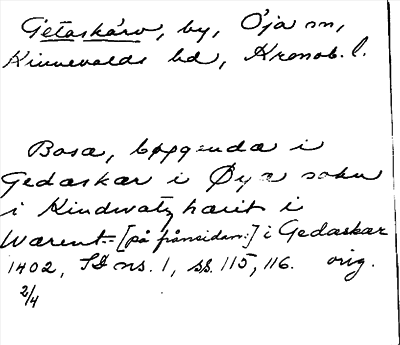 Getaskärv, by, Öja sn,
Kinnevalds hd, Kronob. l.
Bosa, boggenda i
Gedaskar i Øya sokn
i Kindwatzhæret i
Wærent. [på frånsidan:] i Gedaskar
1402, SD ns. 1, ss. 115, 116. orig.
2/4